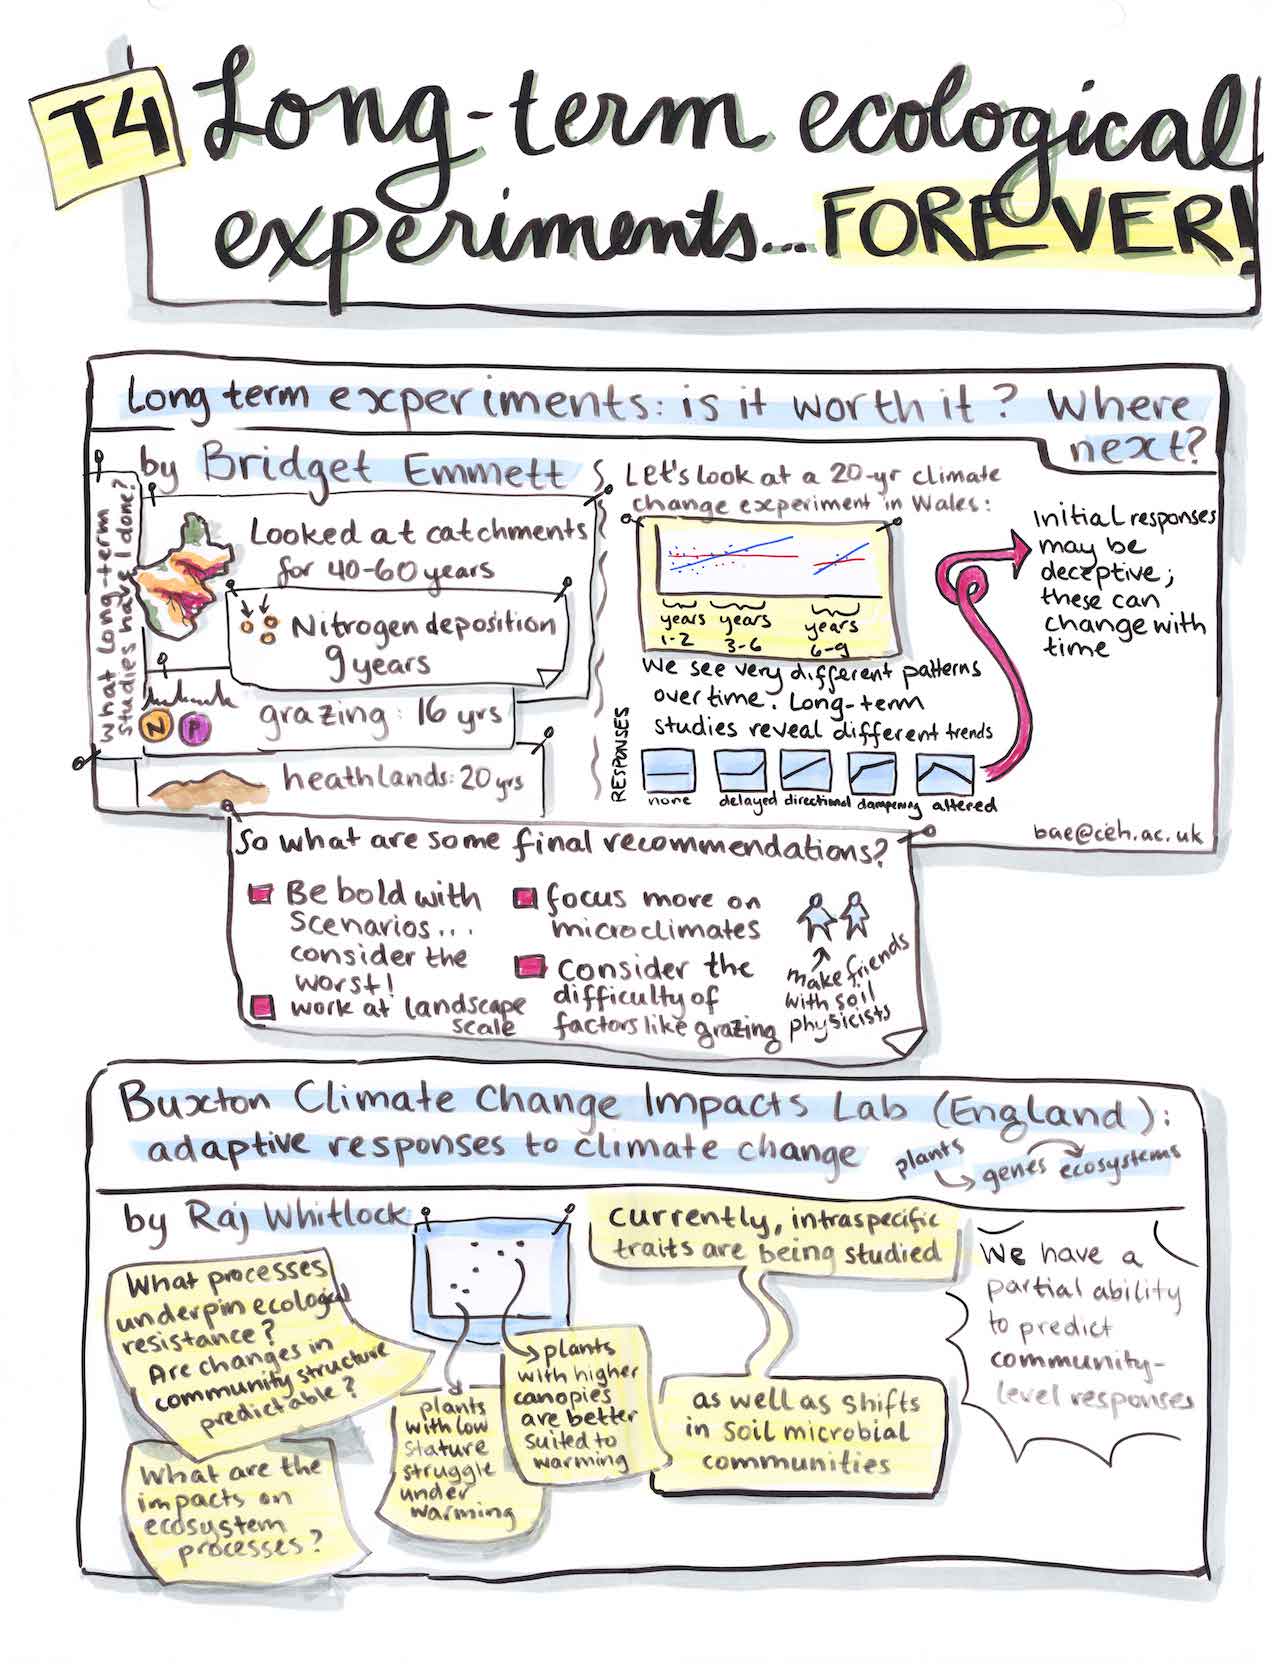 T4
Long-term ecological
experiments... FOREVER!
Long term experiments: is it worth it? Where
next?
by Bridget Emmett
what long-term
studies have I done?
Looked at catchments
for 40-60 years
Nitrogen deposition
9 years
N P
grazing: 16 yrs
heathlands: 20 yrs
Let's look at a 20-yr climate
change experiment in Wales:
years
1-2
years
3-6
years
6-9
We see very different patterns
over time. Long-term
studies reveal different trends
RESPONSES
none delayed directional dampening altered
Initial responses
may be
deceptive;
these can
change with
time
bae@ceh.ac.uk
So what are some final recommendations?
Be bold with
scenarios...
consider the
worst!
work at landscape
scale
focus more on
microclimates
Consider the
difficulty of
factors like grazing
make friends
with soil
physicists
Buxton Climate Change Impacts Lab (England):
adaptive responses to climate change
plants
genes ecosystems
by Raj Whitlock
What processes
underpin ecological
resistance?
Are changes in
community structure
predictable?
What are the
impacts on
ecosystem
processes?
plants
with low
stature
struggle
under
warming
plants
with higher
canopies
are better
suited to
warming
currently, intraspecific
traits are being studied
as well as shifts
in soil microbial
communities
We have a
partial ability
to predict
community-
level responses